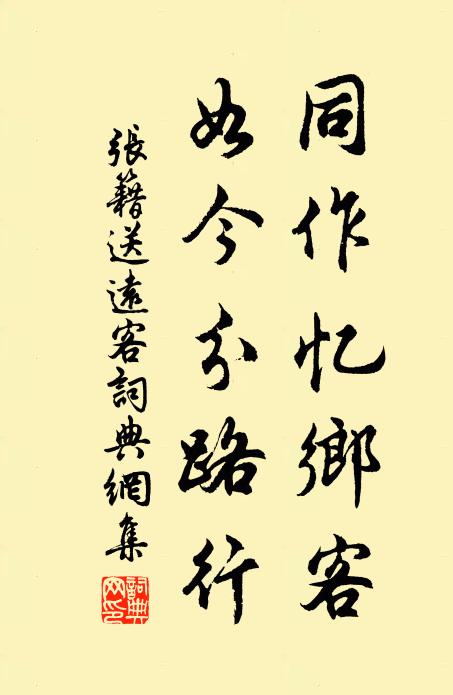 同作忆鄉客
如今分路行
張籍送遠客詞典網集
詞典网印